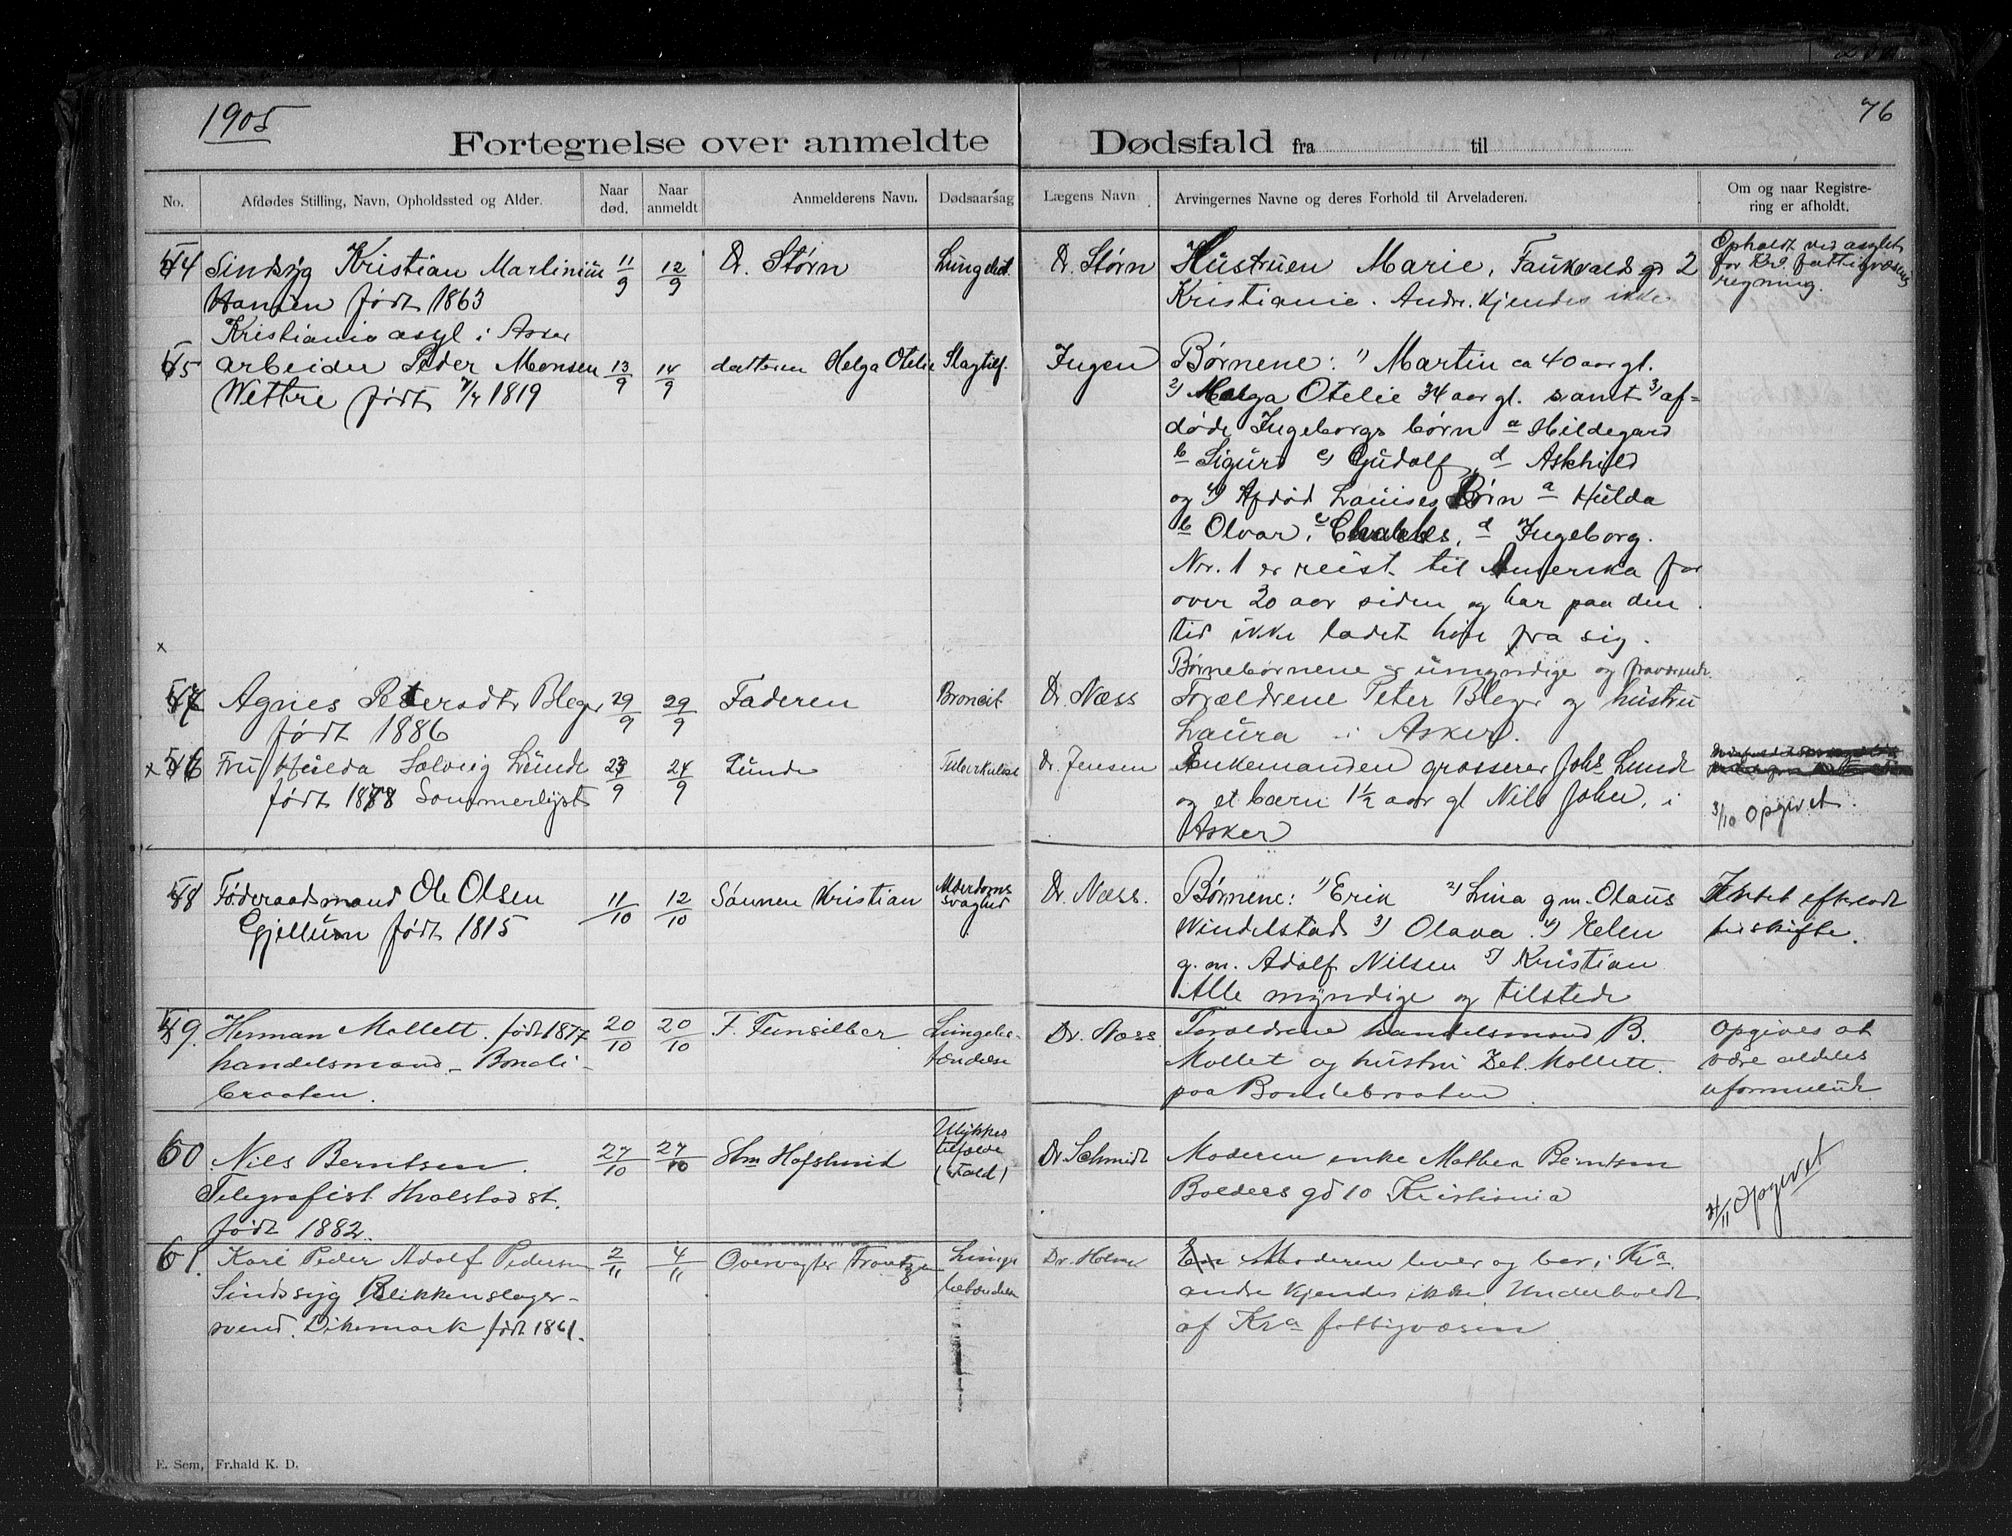 1905
76
Fortegnelse over anmeldte Dødsfald fra til
No.
Afdødes Stilling, Navn, Opholdssted og Alder.
Naar død.
Naar anmeldt
Anmelderens Navn.
Dødsaarsag
Lægens Navn
Arvingernes Navne og deres Forhold til Arveladeren.
Om og naar Registrering er afholdt.
54
Sindsyg Kristian Martinius
Hansen født 1863
Kristiania asyl i Asker
11/9
12/9
Dr. Størn
Dr. Størn
Hustruen Marie, 2
Kristiania. Andre kjendes ikke
Opholdt ved asylet
for Kr. fattigvæsens
regning.
55
Arbeider Peder Monsen
Wettre født 1819
13/9
14/9
datteren Helga Otelie
Slagtilf.
Ingen
Børnene: 1) Martin ca 40 aar gl.
2) Helga Otelie 34 aar gl. samt 3) af=
døde Ingeborgs børn a Hildegard
b Sigurd c) Gudolf, d Askhild
og 4) Afdød Louises Børn a Hulda
b Olvar, c Charles, d Ingeborg.
Nr. 1 er reist til Amerika for
over 20 aar siden og har paa den
tid ikke ladet høre fra sig.
Børnebørnene er umyndige og fraværende
x
57
Agnes Petersdtr Bleger
født 1886
29/9
29/9
Faderen
Broncit
Dr. Næss
Forældrene Peter Bleger og hustru
Laura i Asker.
x 56
Fru Hilda Solveig Lunde
født 1878 Sommerlyst
23/9
24/9
Lunde
Tuberkulose
Dr. Jensen
Enkemanden grosserer Johs Lunde
og et barn 1½ aar gl Nils John, i
Asker
3/10 Opgivet.
58
Føderaadsmand Ole Olsen
Gjellum født 1815
11/10
12/10
Sønnen Kristian
Alderdoms
svaghed
Dr. Næss.
Børnene: 1) Erik 2) Lina g.m. Olaus
Windelstad 3) Olava 4) Helen
g.m. Adolf Nilsen 5) Kristian
Alle myndige og tilstede
Intet efterladt
til skifte.
59.
Herman Mollett. født 1877
handelsmand - Bondi-
braaten.
20/10
20/10
Lungebe-
tændelse
Dr. Næss
Forældrene handelsmand B.
Mollet og hustru Zet. Mollett
paa Bondebraaten
Opgives at
være aldeles
uformuende
60
Nils Berntsen.
Telegrafist Hvalstad st.
født 1882.
27/10
27/10
Stm Hofslund
Ulykkes
tilfælde
(Fald)
Dr. Schmidt
Moderen enke Mathea Berntsen
Balders gd 10 Kristiania
Opgivet
61.
Karl Peder Adolf Pedersen
Sindssyg Blikkenslager-
svend. Dikemark født 1861.
2/11
4/11
Overvogter
Lunge
betændelse
Dr. Holmer
Moderen lever og bor i Kra.
andre kjendes ikke. Underholdt
af Kra fattigvæsen
E. Sem, Fr.hald K. D.